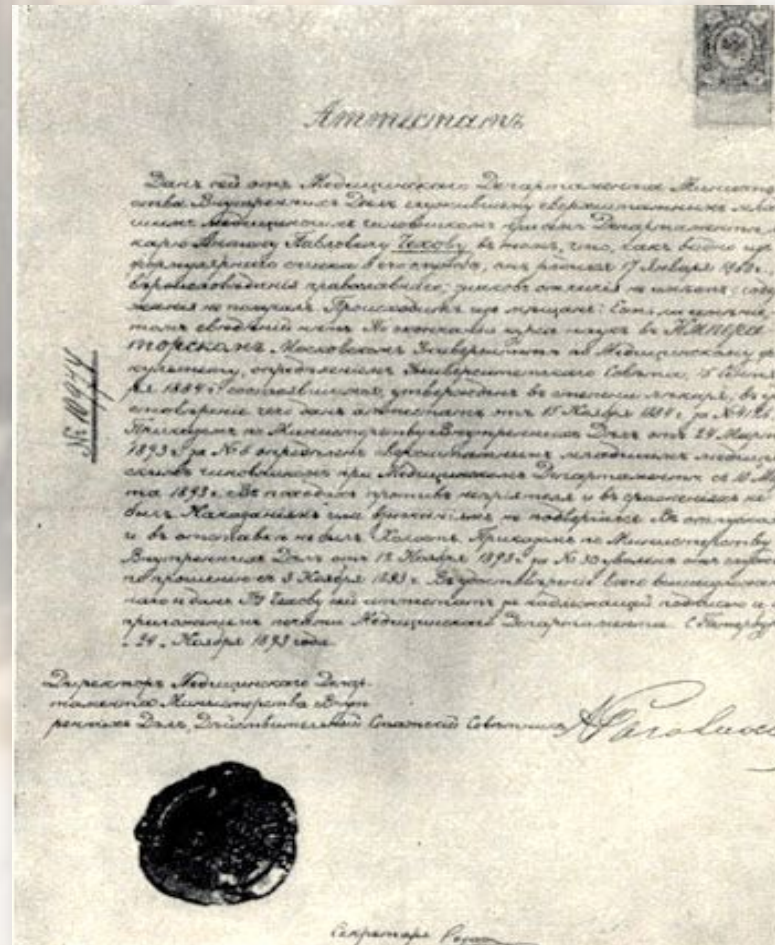 Аттестатъ
Данъ сей отъ Медицинскаго Департамента Министер
ства Внутреннихъ Дѣлъ служившему сверхштатнымъ млад
шимъ медицинскимъ чиновникомъ при семъ Департаментѣ, лѣ
карю Антону Павловичу Чехову въ томъ, что, какъ видно изъ
формулярнаго списка о его службѣ, онъ родился 17 Января 1860 г.,
вѣроисповѣданія православнаго; знаковъ отличія не имѣетъ; содер
жанія не получалъ. Происходитъ изъ мѣщанъ. Есть ли имѣніе,
томъ свѣдѣній нѣтъ. По окончаніи курса наукъ въ Импера
торскомъ Московскомъ Университетѣ по Медицинскому фа
культету, опредѣленіемъ Университетскаго Совѣта, 15 Сентя
ря 1884 г. состоявшимся, утвержденъ въ степени лѣкаря, въ у
стовѣреніе чего данъ аттестатъ отъ 15 Ноября 1884 г. за №
Приказомъ по Министерству Внутреннихъ Дѣлъ отъ 24 Марта
1893 г. за № 6 опредѣленъ сверхштатнымъ младшимъ медицин
скимъ чиновникомъ при Медицинскомъ Департаментѣ съ 10 Мар
та 1893 г. Въ походахъ противъ непріятеля и въ сраженіяхъ не
былъ. Наказаніямъ или взысканіямъ не подвергался. Въ отпускахъ
и въ отставкѣ не былъ. Холостъ. Приказомъ по Министерству
Внутреннихъ Дѣлъ отъ 12 Ноября 1893 г. за № 30 уволенъ отъ службы
по прошенію съ 3 Ноября 1893 г. Въ удостовѣреніе всего вышеизложен
наго и данъ Г. Чехову сей аттестатъ за надлежащей подписью и
приложеніемъ печати Медицинскаго Департамента. С.Петербу
24 Ноября 1893 года
Директоръ Медицинскаго Депар
тамента Министерства Внут
реннихъ Дѣлъ, Дѣйствительный Статскій Совѣтникъ
Секретарь